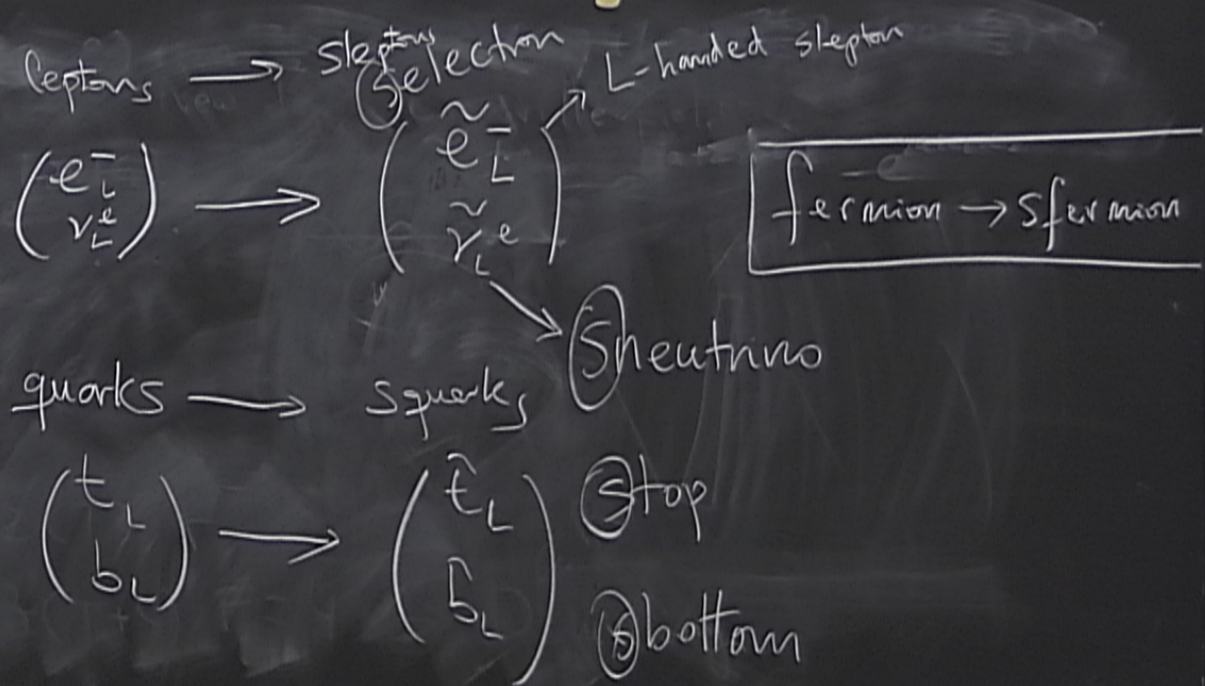 leptons → sleptons
Selectron
L-handed slepton
(e⁻_L ν^e_L) → (ẽ⁻_L ν̃^e_L)
fermion → sfermion
Sneutrino
quarks → squarks
(t_L b_L) → (t̃_L b̃_L)
Stop
Sbottom